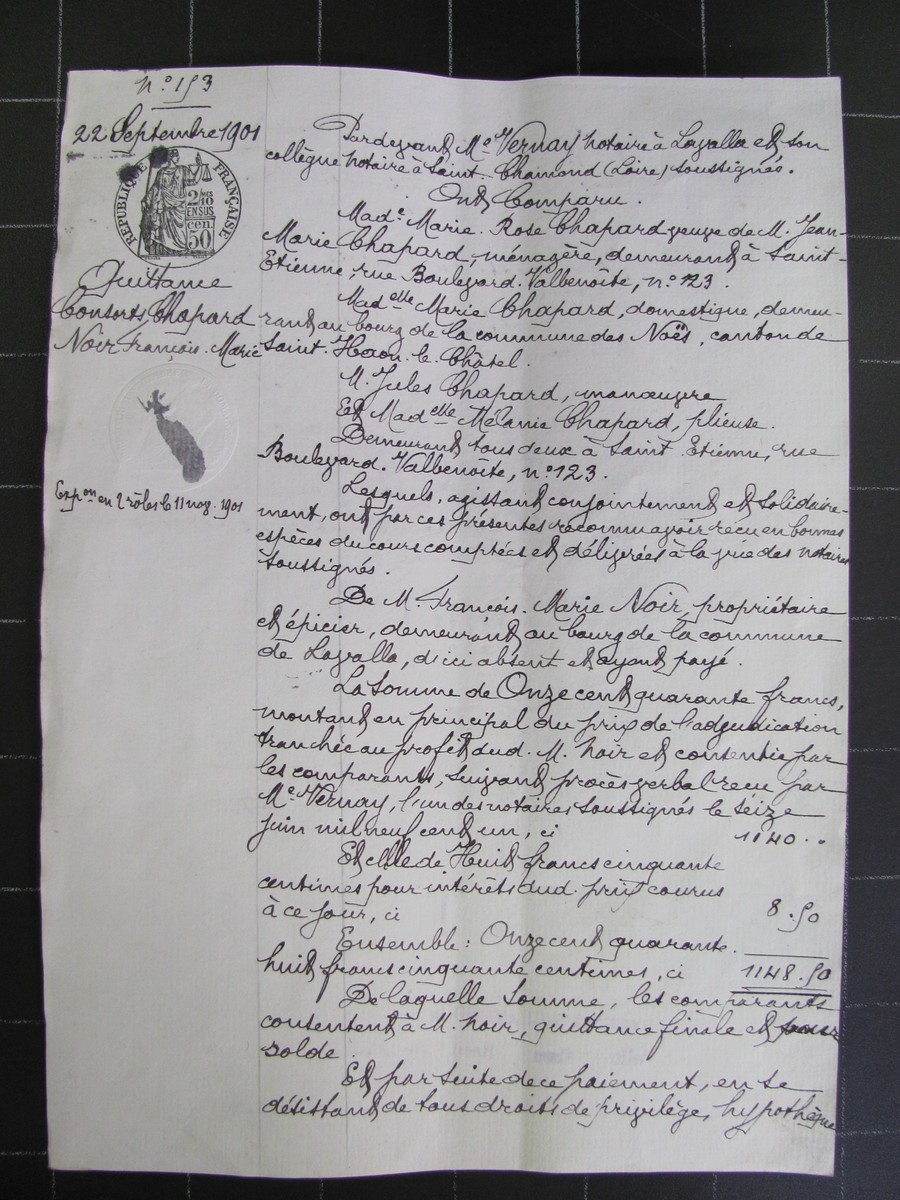 n.º 153
22 Septembre 1901
RÉPUBLIQUE FRANÇAISE
2/10
EN SUS
50 cen.
Quittance
Consorts Chapard
Noir François-Marie
Expon en 2 rôles le 11 nov. 1901
Pardevant Me Vernay notaire à Lavalla et son
collègue notaire à Saint-Chamond (Loire) soussignés.
Ont Comparu.
Made Marie-Rose Chapard veuve de M. Jean-
Marie Chapard, ménagère, demeurant à Saint-
Etienne, rue Boulevard-Valbenoîte, n.º 123.
Madelle Marie Chapard, domestique, demeu-
rant au bourg de la commune des Noës, canton de
Saint-Haon-le-Châtel.
M. Jules Chapard, manœuvre
Et Madelle Mélanie Chapard, plieuse.
Demeurant tous deux à Saint-Etienne, rue
Boulevard-Valbenoîte, n.º 123.
Lesquels, agissant conjointement et solidaire-
ment, ont par ces présentes reconnu avoir reçu en bonnes
espèces du cours comptées et délivrées à la vue des notaires
soussignés.
De M. François-Marie Noir, propriétaire
et épicier, demeurant au bourg de la commune
de Lavalla, d'ici absent et ayant payé.
La somme de Onze cent quarante francs,
montant en principal du prix de l'adjudication
tranchée au profit dud. M. Noir et consentie par
les comparants, suivant procès verbal reçu par
Me Vernay, l'un des notaires soussignés le seize
juin mil neuf cent un, ci 1140 . "
Et celle de Huit francs cinquante
centimes pour intérêts dud. prix courus
à ce jour, ci 8.50
Ensemble : Onze cent quarante-
huit francs cinquante centimes, ci 1148.50
De laquelle somme, les comparants
consentent à M. Noir, quittance finale et pour
solde.
Et par suite de ce paiement, en se
désistant de tous droits de privilège, hypothèque